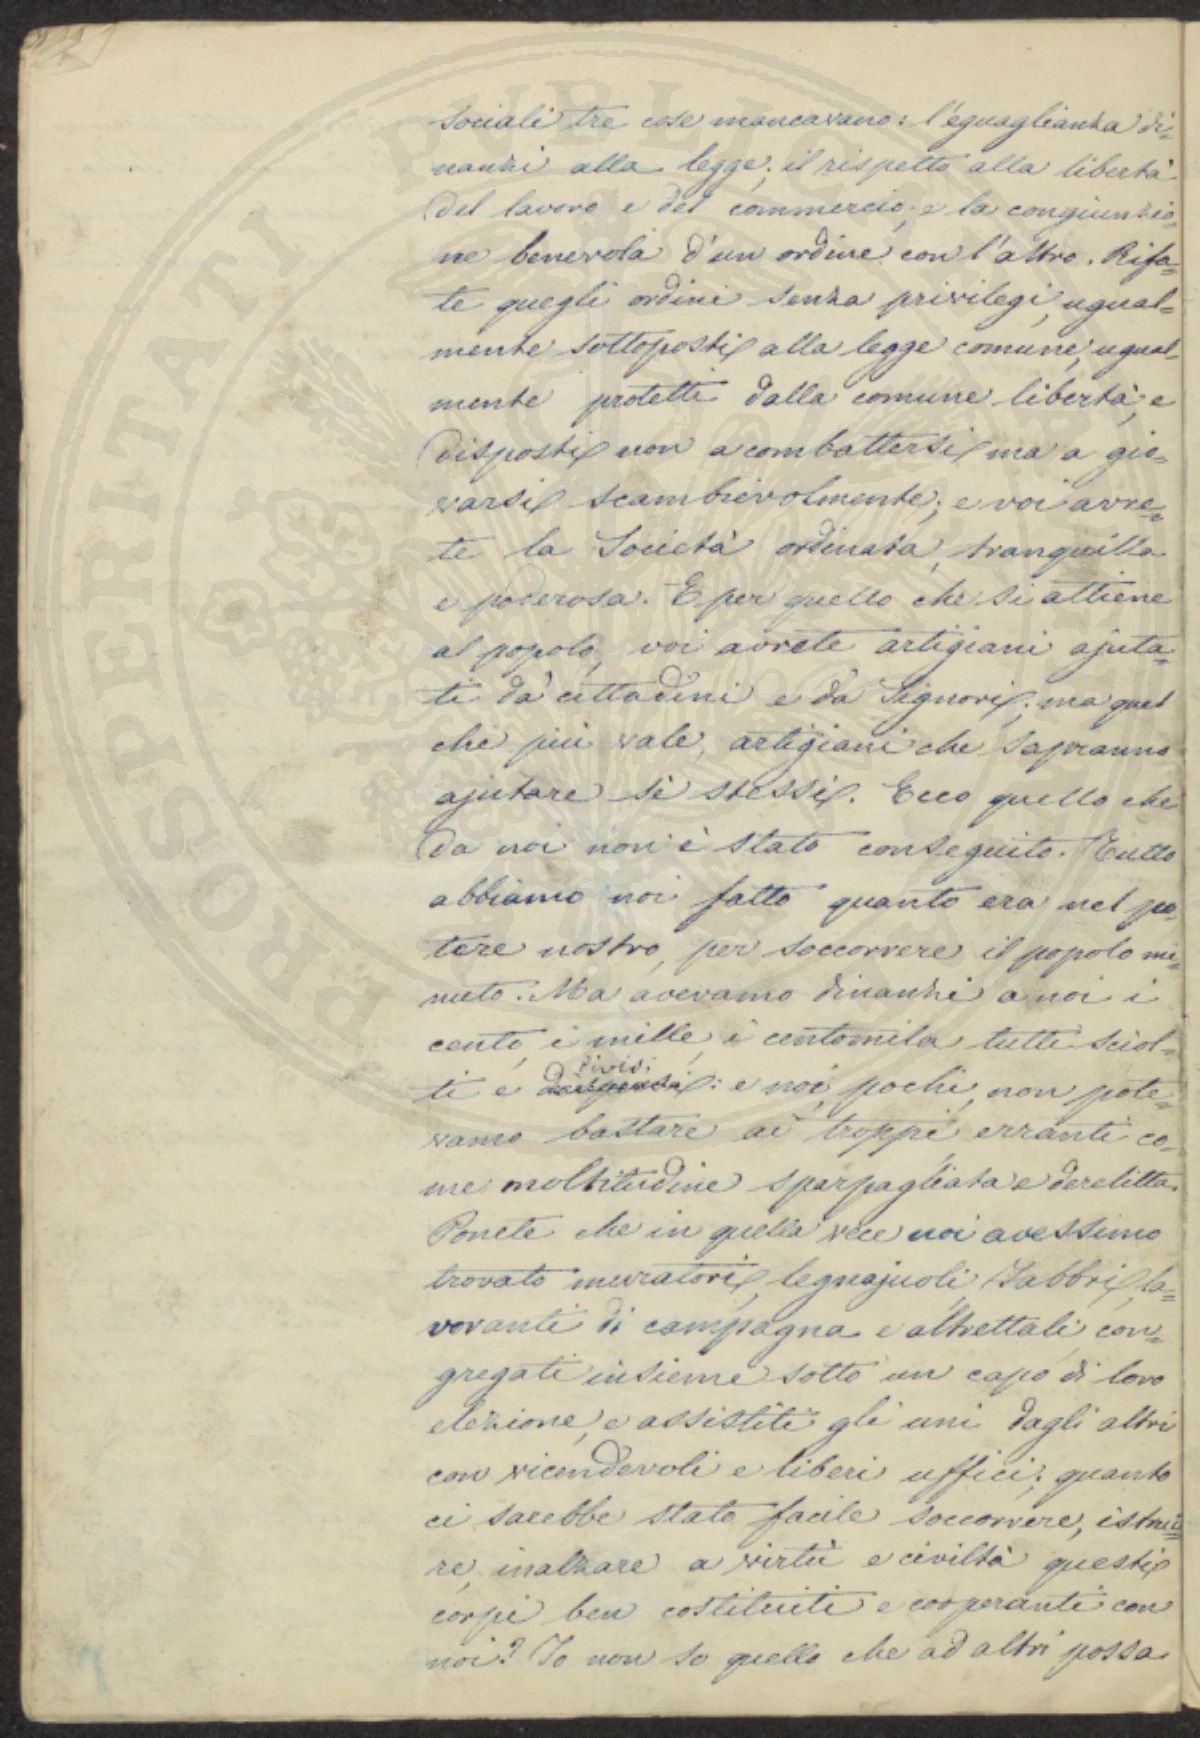 sociali tre cose mancavano: l'eguaglianza di=
nanzi alla legge; il rispetto alla libertà
del lavoro e del commercio; e la congiunzio=
ne benevola d'un ordine con l'altro. Rifa=
te quegli ordini senza privilegi, ugual=
mente sottoposti alla legge comune, ugual=
mente protetti dalla comune libertà, e
disposti non a combattersi ma a gio=
varsi scambievolmente; e voi avre=
te la Società ordinata, tranquilla
e poderosa. E per quello che si attiene
al popolo, voi avrete artigiani ajuta=
ti da' cittadini e da' Signori; ma quel
che più vale, artigiani che sapranno
ajutare sè stessi. Ecco quello che
da noi non è stato conseguito. Tutto
abbiamo noi fatto quanto era nel po=
tere nostro, per soccorrere il popolo mi=
nuto. Ma avevamo dinanzi a noi i
cento, i mille, i centomila tutti sciol=
divisi
ti e : e noi, pochi, non pote=
vamo bastare ai troppi erranti co=
me moltitudine sparpagliata e derelitta.
Ponete che in quella vece noi avessimo
trovato muratori, legnajuoli, Fabbri, la=
voranti di campagna e altrettali, con=
gregati insieme sotto un capo di loro
elezione, e assistiti gli uni dagli altri
con vicendevoli e liberi uffici; quanto
ci sarebbe stato facile soccorrere, istrui=
re, inalzare a virtù e civiltà questi
corpi ben costituiti e cooperanti con
noi? Io non so quello che ad altri possa
PROSPERITATI PUBLICAE